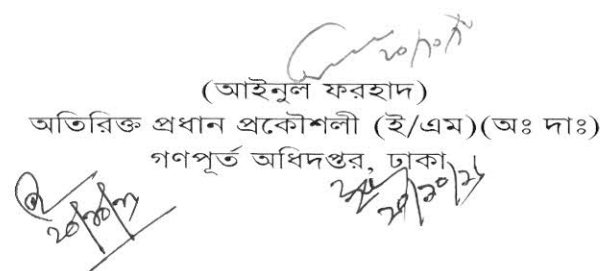 (আইনুল ফরহাদ)
অতিরিক্ত প্রধান প্রকৌশলী (ই/এম)(অঃ দাঃ)
গণপূর্ত অধিদপ্তর, ঢাকা